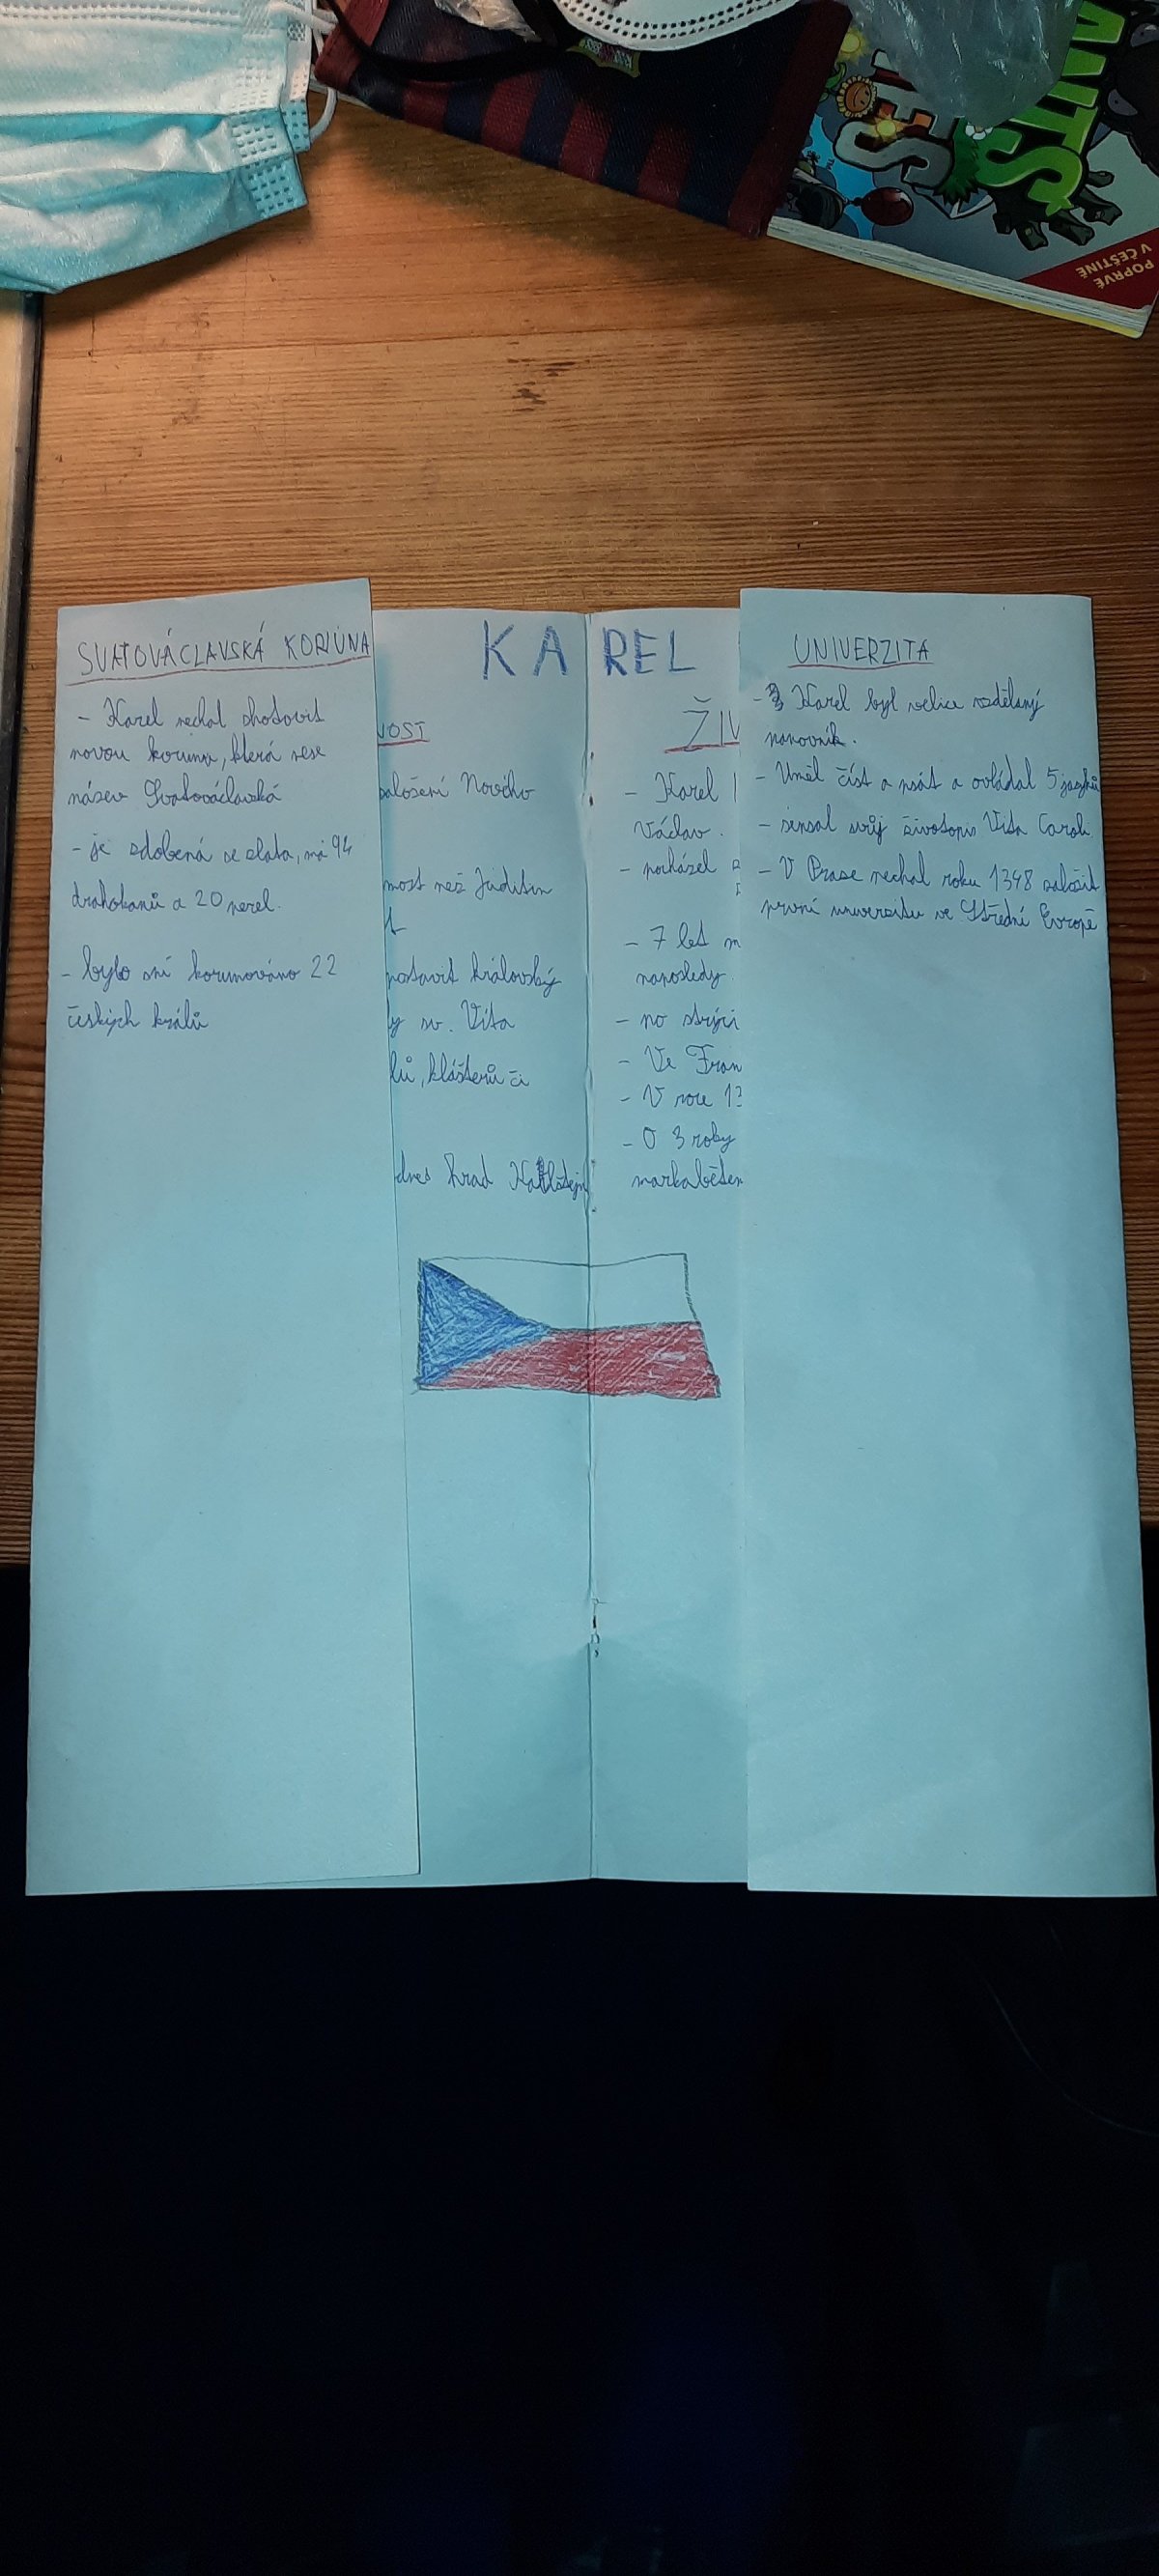 ANTS
POPRVÉ
V ČEŠTINĚ
SVATOVÁCLAVSKÁ KORUNA
- Karel nechal zhotovit
novou korunu, která nese
název Svatováclavská
- je zdobená ze zlata, má 94
drahokamů a 20 perel.
- bylo sní korunováno 22
českých králů
KAREL
NOST
založení Nového
most než Juditin
postavit královský
sv. Víta
lů, klášterů či
dnes hrad
ŽIV
- Karel
Václav.
- pocházel
- 7 let
naposledy
- po strýci
- Ve Fran
- V roce 13
- O 3 roky
UNIVERZITA
- Karel byl velice vzdělaný
panovník.
- Uměl číst a psát a ovládal 5 jazyků
- sepsal svůj životopis Vita Caroli
- V Praze nechal roku 1348 založit
první univerzitu ve Střední Evropě